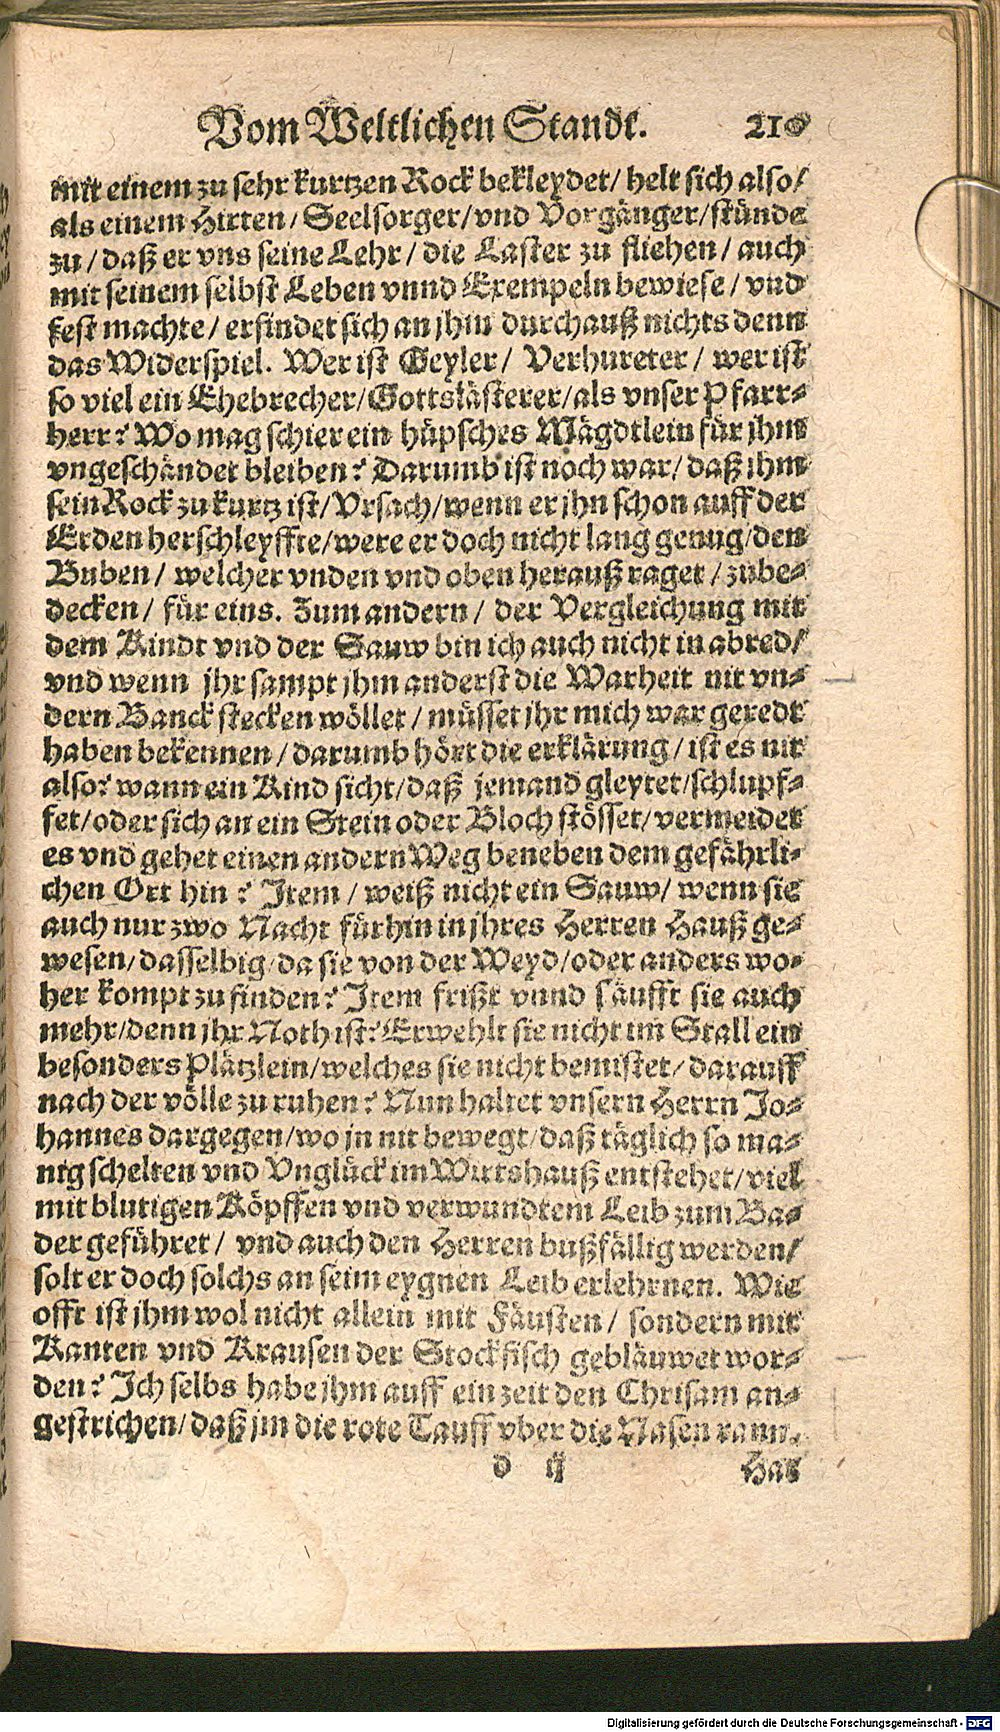 Vom Weltlichen Stande. 210
mit einem zu sehr kurtzen Rock bekleydet/ helt sich also/
als einem Hirten/ Seelsorger/ vnd Vorgänger/ stünde
zu/ daß er vns seine Lehr/ die Laster zu fliehen/ auch
mit seinem selbst Leben vnnd Exempeln bewiese/ vnd
fest machte/ erfindet sich an jhm durchauß nichts denn
das Widerspiel. Wer ist Geyler/ Verhureter/ wer ist
so viel ein Ehebrecher/ Gottslästerer/ als vnser Pfarr-
herr? Wo mag schier ein hüpsches Mägdtlein für jhm
vngeschändet bleiben? Darumb ist noch war/ daß jhm
sein Rock zu kurtz ist/ Vrsach/ wenn er jhn schon auff der
Erden herschleyffte/ were er doch nicht lang genug/ den
Buben/ welcher vnden vnd oben herauß raget/ zube-
decken/ für eins. Zum andern/ der Vergleichung mit
dem Kindt vnd der Sauw bin ich auch nicht in abred/
vnd wenn jhr sampt jhm anderst die Warheit nit vn-
dern Banck stecken wöllet/ müsset jhr mich war geredt
haben bekennen/ darumb hört die erklärung/ ist es nit
also? wann ein Kind sicht/ daß jemand gleytet/ schlupf-
fet/ oder sich an ein Stein oder Bloch stösset/ vermeidet
es vnd gehet einen andern Weg beneben dem gefährli-
chen Ort hin? Item/ weiß nicht ein Sauw/ wenn sie
auch nur zwo Nacht fürhin in jhres Herren Hauß ge-
wesen/ dasselbig/ da sie von der Weyd/ oder anders wo-
her kompt zu finden? Item frißt vnnd säufft sie auch
mehr/ denn jhr Noth ist? Erwehlt sie nicht im Stall ein
besonders Plätzlein/ welches sie nicht bemistet/ darauff
nach der völle zu ruhen? Nun haltet vnsern Herrn Jo-
hannes dargegen/ wo jn nit bewegt/ daß täglich so ma-
nig schelten vnd Vnglück im Wirtshauß entstehet/ viel
mit blutigen Köpffen vnd verwundtem Leib zum Ba-
der geführet/ vnd auch den Herren bußfällig werden/
solt er doch solchs an seim eygnen Leib erlehrnen. Wie
offt ist jhm wol nicht allein mit Fäusten/ sondern mit
Kanten vnd Krausen der Stockfisch gebläuwet wor-
den? Ich selbs habe jhm auff ein zeit den Chrisam an-
gestrichen/ daß jm die rote Tauff vber die Nasen rann.
d ij Hat
Digitalisierung gefördert durch die Deutsche Forschungsgemeinschaft - DFG